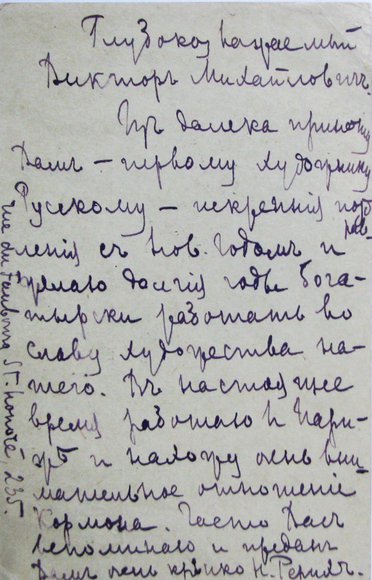 Глубокоуважаемый
Викторъ Михайловичъ.
Изъ далека приношу
Вамъ – первому художнику
Русскому – искреннія позд
рав
ленія съ Нов. Годомъ и
желаю долгія годы бога-
тырски работать во
славу художества на-
шего. Въ настоящее
время работаю в Пари-
жѣ и нахожу очень вни
мательное отношеніе
Кормона. Часто Васъ
вспоминаю и преданъ
Вамъ очень крѣпко Н. Рерихъ.
rue du Faubourg St. Honoré, 235.